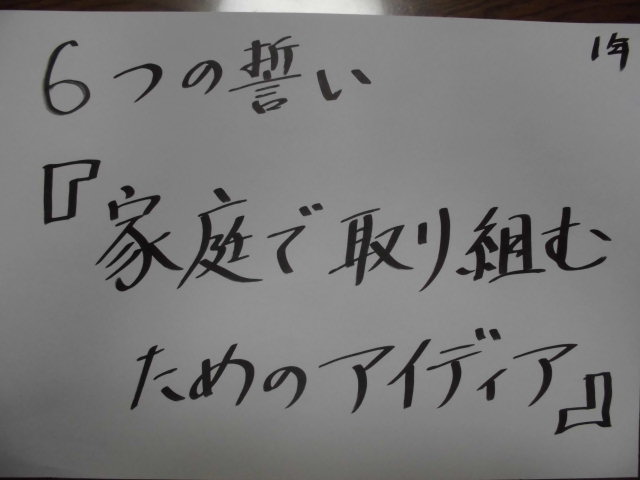 1年
6つの誓い
『家庭で取り組む
ためのアイディア』